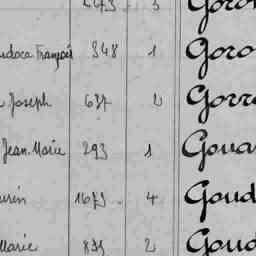 3 Goro
François 348 1 Goro
Joseph 637 2 Gorr
Jean. Marie 293 1 Goua
1673 4 Goud
Marie 839 2 Goud